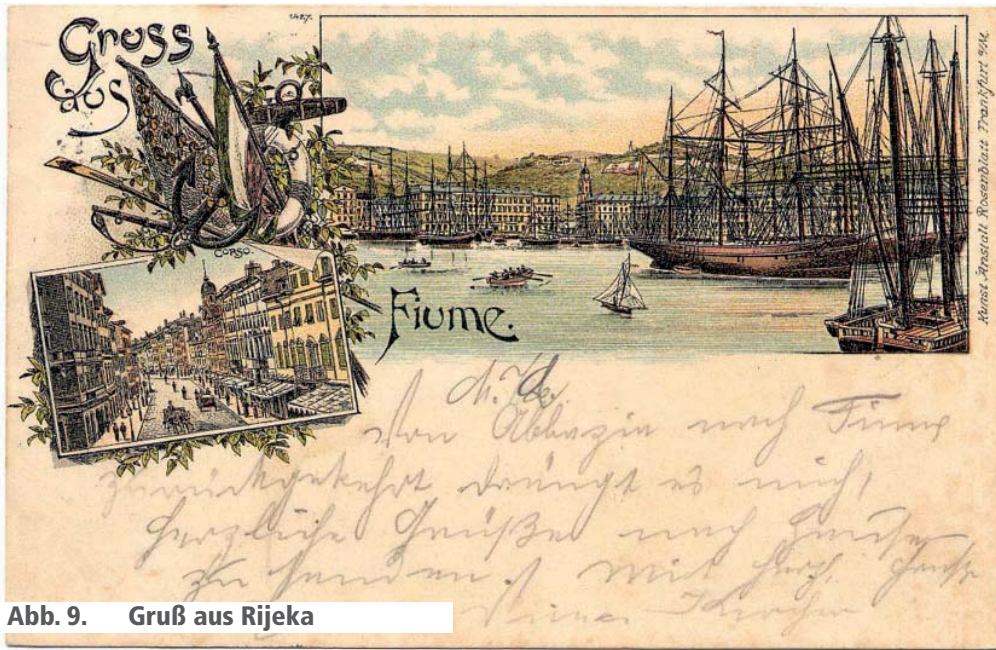 1427.
Gruss
aus
Corso.
Fiume.
Kunst-Anstalt Rosenblatt Frankfurt a/M.
Von Abbazia nach Fiume
zurückgekehrt drängt es mich,
herzliche Grüße nach Hause
zu senden. Mit herzl.
Abb. 9. Gruß aus Rijeka